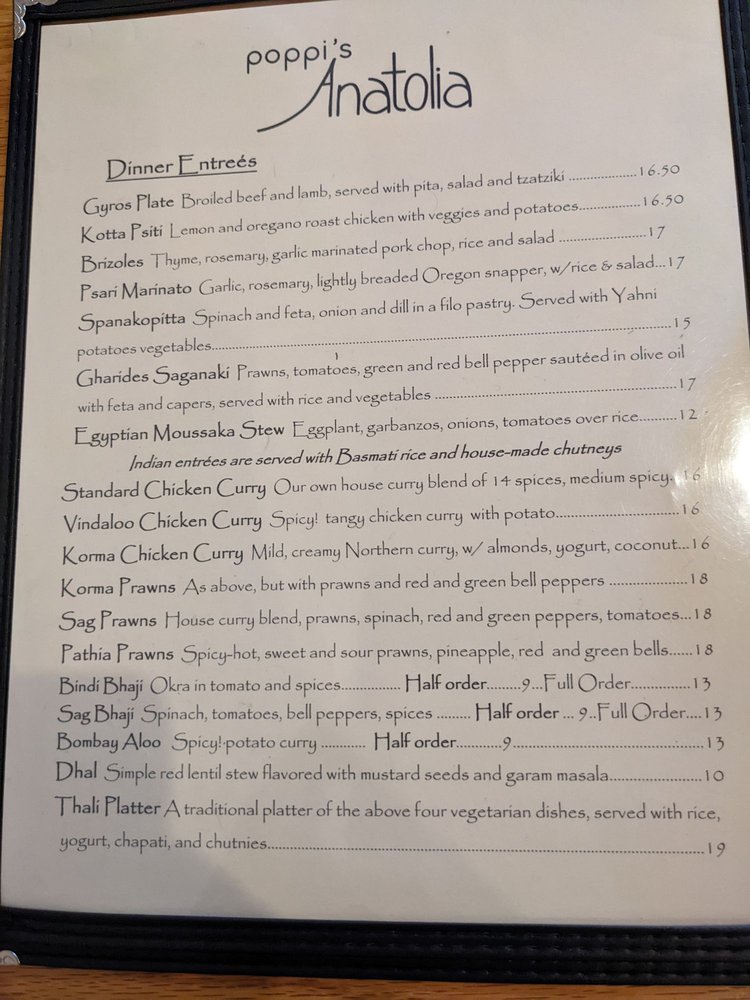 poppi's
Anatolia
Dinner Entreés
Gyros Plate Broiled beef and lamb, served with pita, salad and tzatziki ..................16.50
Kotta Psiti Lemon and oregano roast chicken with veggies and potatoes................16.50
Brizoles Thyme, rosemary, garlic marinated pork chop, rice and salad .......................17
Psari Marinato Garlic, rosemary, lightly breaded Oregon snapper, w/rice & salad...17
Spanakopitta Spinach and feta, onion and dill in a filo pastry. Served with Yahni
potatoes vegetables..........................................................................................................................15
Gharides Saganaki Prawns, tomatoes, green and red bell pepper sautéed in olive oil
with feta and capers, served with rice and vegetables .................................................................17
Egyptian Moussaka Stew Eggplant, garbanzos, onions, tomatoes over rice..........12
Indian entrées are served with Basmati rice and house-made chutneys
Standard Chicken Curry Our own house curry blend of 14 spices, medium spicy. 16
Vindaloo Chicken Curry Spicy! tangy chicken curry with potato.................................16
Korma Chicken Curry Mild, creamy Northern curry, w/ almonds, yogurt, coconut...16
Korma Prawns As above, but with prawns and red and green bell peppers .....................18
Sag Prawns House curry blend, prawns, spinach, red and green peppers, tomatoes...18
Pathia Prawns Spicy-hot, sweet and sour prawns, pineapple, red and green bells......18
Bindi Bhaji Okra in tomato and spices............... Half order.........9...Full Order...............13
Sag Bhaji Spinach, tomatoes, bell peppers, spices ......... Half order ... 9..Full Order....13
Bombay Aloo Spicy! potato curry ............ Half order............9..................................................13
Dhal Simple red lentil stew flavored with mustard seeds and garam masala.........................10
Thali Platter A traditional platter of the above four vegetarian dishes, served with rice,
yogurt, chapati, and chutnies..............................................................................................................19